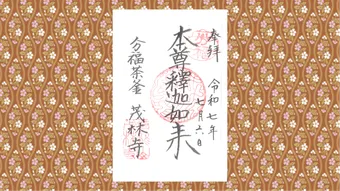 奉拝
令和七年
七月六日
本尊釋迦如来
分福茶釜
茂林寺